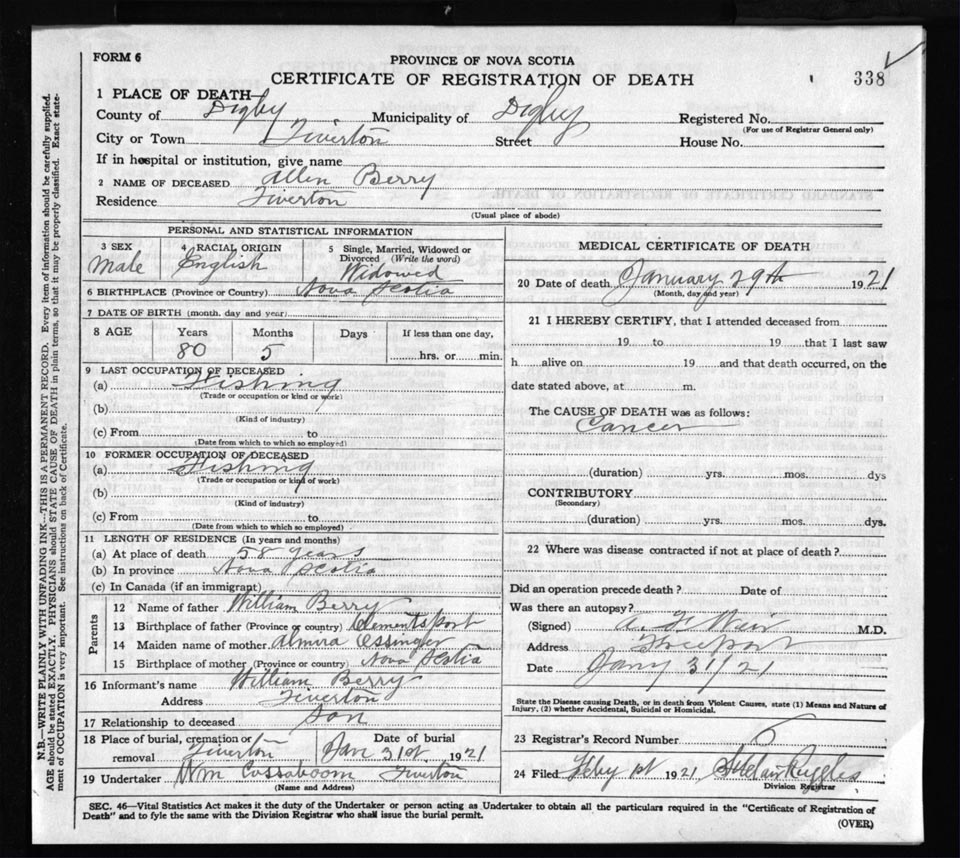 FORM 6
PROVINCE OF NOVA SCOTIA
CERTIFICATE OF REGISTRATION OF DEATH
338
1 PLACE OF DEATH
County of Digby Municipality of Digby Registered No.
(For use of Registrar General only)
City or Town Tiverton Street House No.
If in hospital or institution, give name
2 NAME OF DECEASED Allen Berry
Residence Tiverton
(Usual place of abode)
PERSONAL AND STATISTICAL INFORMATION
3 SEX Male
4 RACIAL ORIGIN English
5 Single, Married, Widowed or Divorced (Write the word) Widowed
6 BIRTHPLACE (Province or Country) Nova Scotia
7 DATE OF BIRTH (month, day and year)
8 AGE Years Months Days If less than one day,
80 5 hrs. or min.
9 LAST OCCUPATION OF DECEASED
(a) Fishing
(Trade or occupation or kind or work)
(b)
(Kind of industry)
(c) From to
(Date from which to which so employed)
10 FORMER OCCUPATION OF DECEASED
(a) Fishing
(Trade or occupation or kind of work)
(b)
(Kind of industry)
(c) From to
(Date from which to which so employed)
11 LENGTH OF RESIDENCE (In years and months)
(a) At place of death 58 years
(b) In province Nova Scotia
(c) In Canada (if an immigrant)
Parents
12 Name of father William Berry
13 Birthplace of father (Province or country) Clementsport
14 Maiden name of mother Almira Ossinger
15 Birthplace of mother (Province or country) Nova Scotia
16 Informant's name William Berry
Address Tiverton
17 Relationship to deceased Son
18 Place of burial, cremation or removal Tiverton
Date of burial Jan 31st 1921
19 Undertaker Wm Cossaboom Tiverton
(Name and Address)
MEDICAL CERTIFICATE OF DEATH
20 Date of death January 29th 1921
(Month, day and year)
21 I HEREBY CERTIFY, that I attended deceased from
19 to 19 that I last saw
h alive on 19 and that death occurred, on the
date stated above, at m.
The CAUSE OF DEATH was as follows:
Cancer
(duration) yrs. mos. dys
CONTRIBUTORY
(Secondary)
(duration) yrs. mos. dys.
22 Where was disease contracted if not at place of death?
Did an operation precede death? Date of
Was there an autopsy?
(Signed) Weir M.D.
Address Freeport
Date Jany 31/21
State the Disease causing Death, or in death from Violent Causes, state (1) Means and Nature of
Injury, (2) whether Accidental, Suicidal or Homicidal.
23 Registrar's Record Number
24 Filed Feby 1st 1921 Ruggles
Division Registrar
SEC. 46—Vital Statistics Act makes it the duty of the Undertaker or person acting as Undertaker to obtain all the particulars required in the "Certificate of Registration of
Death" and to fyle the same with the Division Registrar who shall issue the burial permit.
(OVER)
N.B.—WRITE PLAINLY WITH UNFADING INK—THIS IS A PERMANENT RECORD. Every item of information should be carefully supplied.
AGE should be stated EXACTLY. PHYSICIANS should STATE CAUSE OF DEATH in plain terms, so that it may be properly classified. Exact state-
ment of OCCUPATION is very important. See instructions on back of Certificate.